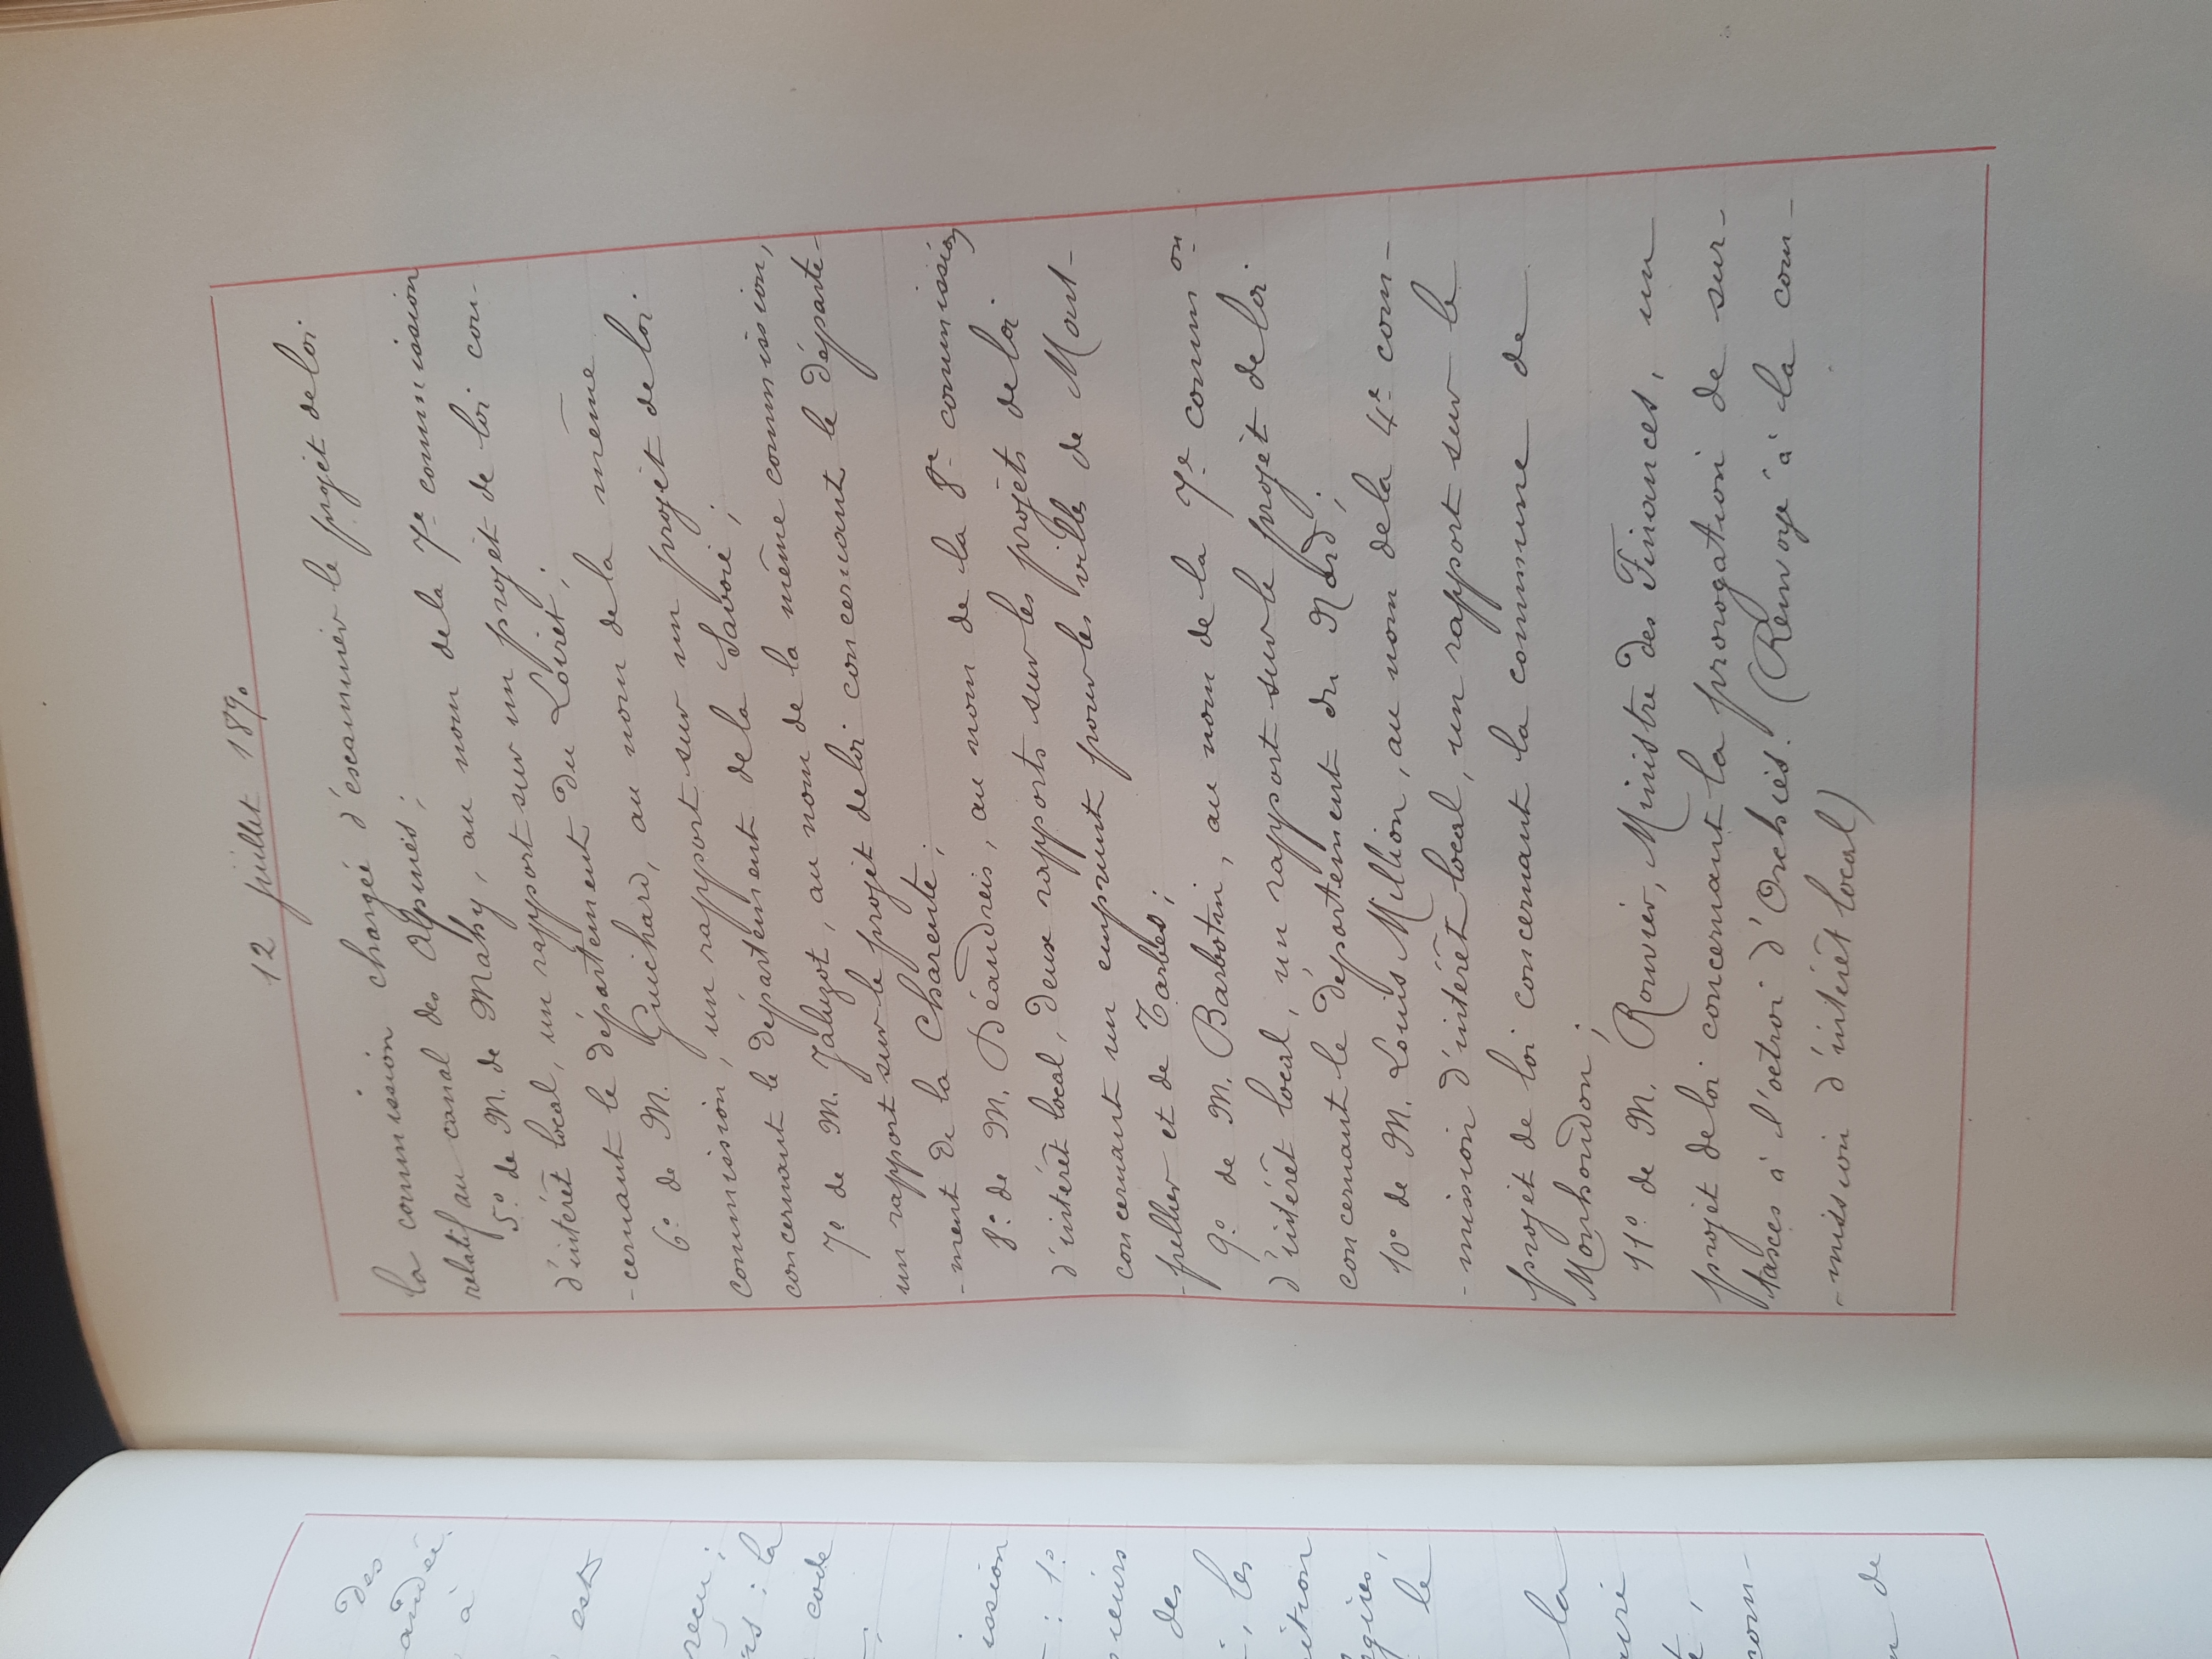 des
andé
à
est
reçu ;
rs : la
code
ission
: 1°
sieurs
des
, les
ition
le
la
com-
de
12 juillet 1890
la commission chargée d'examiner le projet de loi
relatif au canal des Alpines ;
5° de M. de Mahy, au nom de la 7e commission
d'intérêt local, un rapport sur un projet de loi con-
-cernant le département du Loiret ;
6° de M. Guichard, au nom de la même
commission, un rapport sur un projet de loi
concernant le département de la Savoie ;
7° de M. Jabuzot, au nom de la même commission,
un rapport sur le projet de loi concernant le départe-
-ment de la Charente ;
8° de M. Déandreis, au nom de la 8e commission
d'intérêt local, deux rapports sur les projets de loi
concernant un emprunt pour les villes de Mont-
-pellier et de Tarbes ;
9° de M. Barbotin, au nom de la 7e common
d'intérêt local, un rapport sur le projet de loi
concernant le département du Nord ;
10° de M. Louis Million, au nom de la 4e com-
-mission d'intérêt local, un rapport sur le
projet de loi concernant la commune de
Monhoudon ;
11° de M. Rouvier, Ministre des Finances, un
projet de loi concernant la prorogation de sur-
taxes à l'octroi d'Orchies. (Renvoyé à la com-
-mission d'intérêt local)